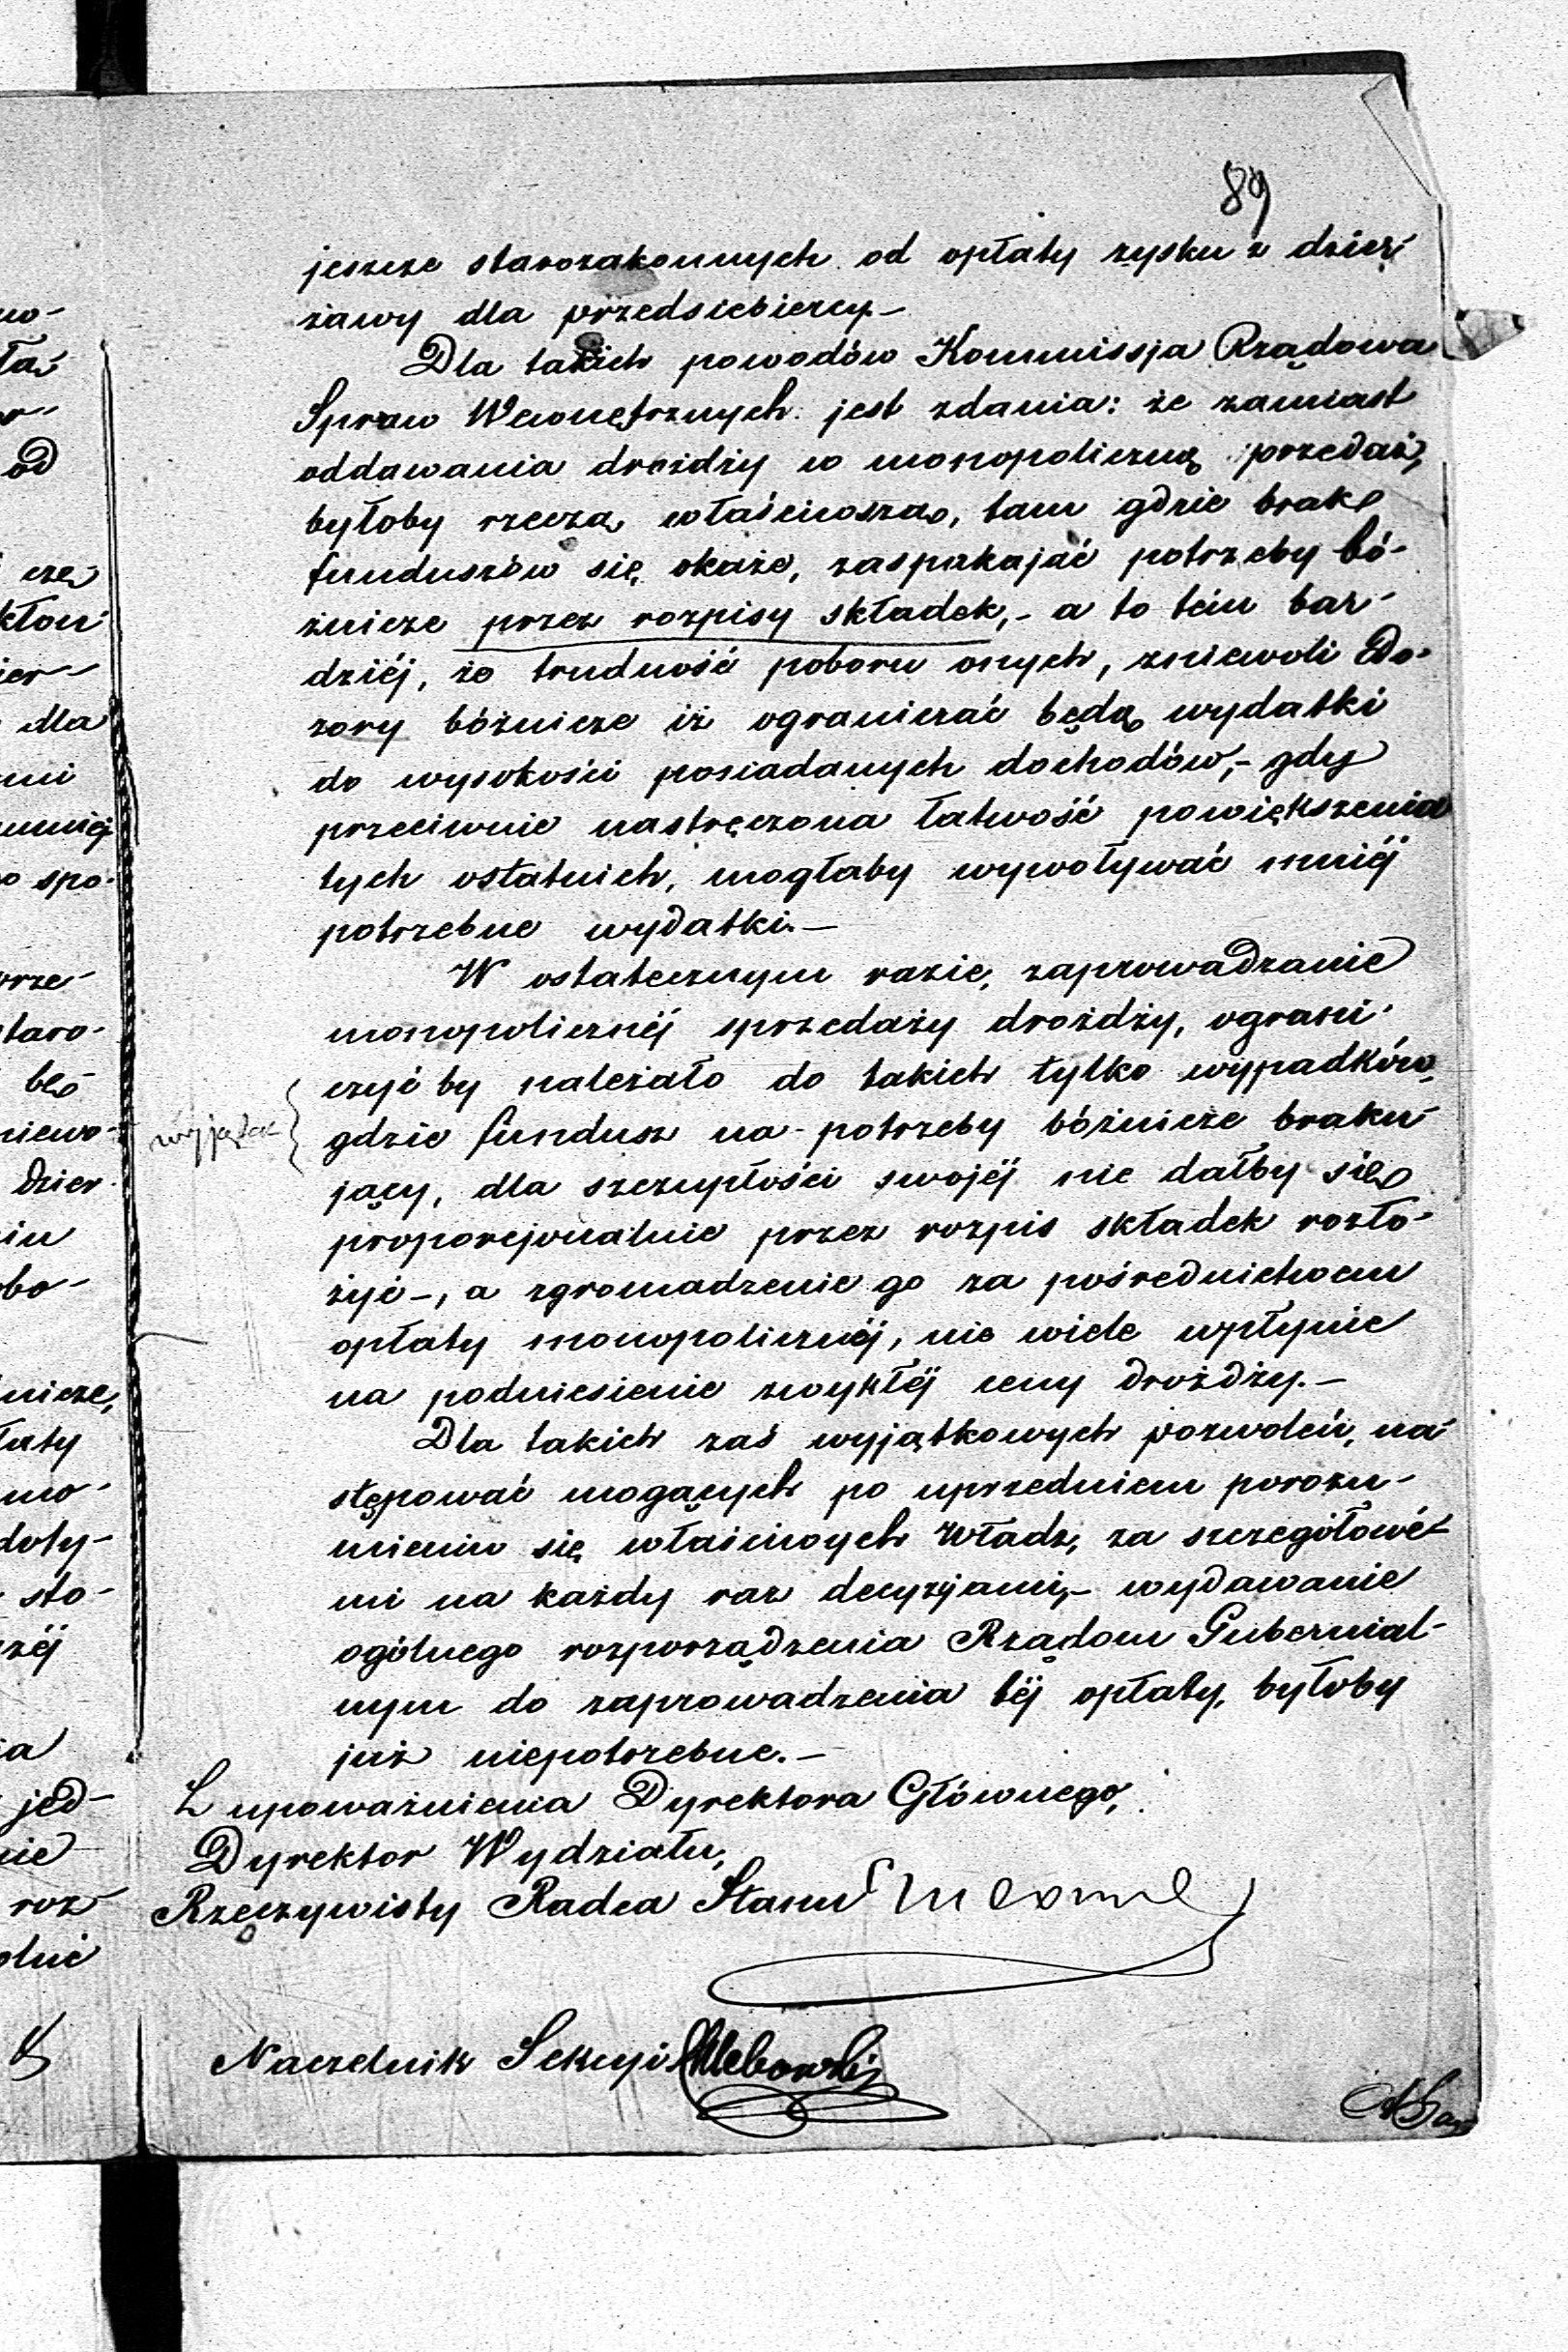 89
jeszcze starozakonnych od opłaty zysku z dzier-
żawy dla przedsiebiercy.—
Dla takich powodów Kommissja Rządowa
Spraw Wewnętrznych jest zdania: że zamiast
oddawania drożdży w monopoliczną przedaż,
byłoby rzeczą właściwszą, tam gdzie brak
funduszów się okaże, zaspakajać potrzeby bó-
żnicze przez rozpisy składek,- a to tém bar-
dziéj, że trudność poboru onych, zniewoli Do-
zory bóżnicze iż ograniczać będą wydatki
do wysokości posiadanych dochodów,- gdy
przeciwnie nastręczona łatwość powiększenia
tych ostatnich, mogłaby wywoływać mniéj
potrzebne wydatki.—
W ostatecznym razie, zaprowadzanie
monopolicznéj sprzedaży drożdży, ograni-
czyć by należało do takich tylko wypadków,
wyjątek
gdzie fundusz na potrzeby bóżnicze braku-
jący, dla szczupłości swojéj nie dałby się
proporcjonalnie przez rozpis składek rozło-
żyć-, a zgromadzenie go za pośrednictwem
opłaty monopolicznéj, nie wiele wpłynie
na podniesienie zwykłéj ceny drożdży.—
Dla takich zaś wyjątkowych pozwoleń, na-
stępować mogących po uprzedniem porozu-
mieniu się właściwych Władz, za szczegółowé-
mi na każdy raz decyzjami,- wydawanie
ogólnego rozporządzenia Rządom Gubernial-
nym do zaprowadzenia téj opłaty, byłoby
już niepotrzebne.—
Z upoważnienia Dyrektora Głównego,
Dyrektor Wydziału,
Rzeczywisty Radca Stanu
Naczelnik Sekcyi